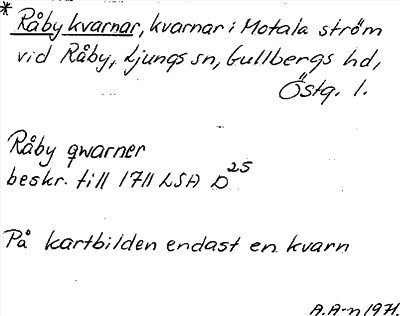 * Råby kvarnar, kvarnar i Motala ström
vid Råby, Ljungs sn, Gullbergs hd,
Östg. l.
Råby qwarner
beskr. till 1711 LSA D25
På kartbilden endast en kvarn
A.A-n 1971.